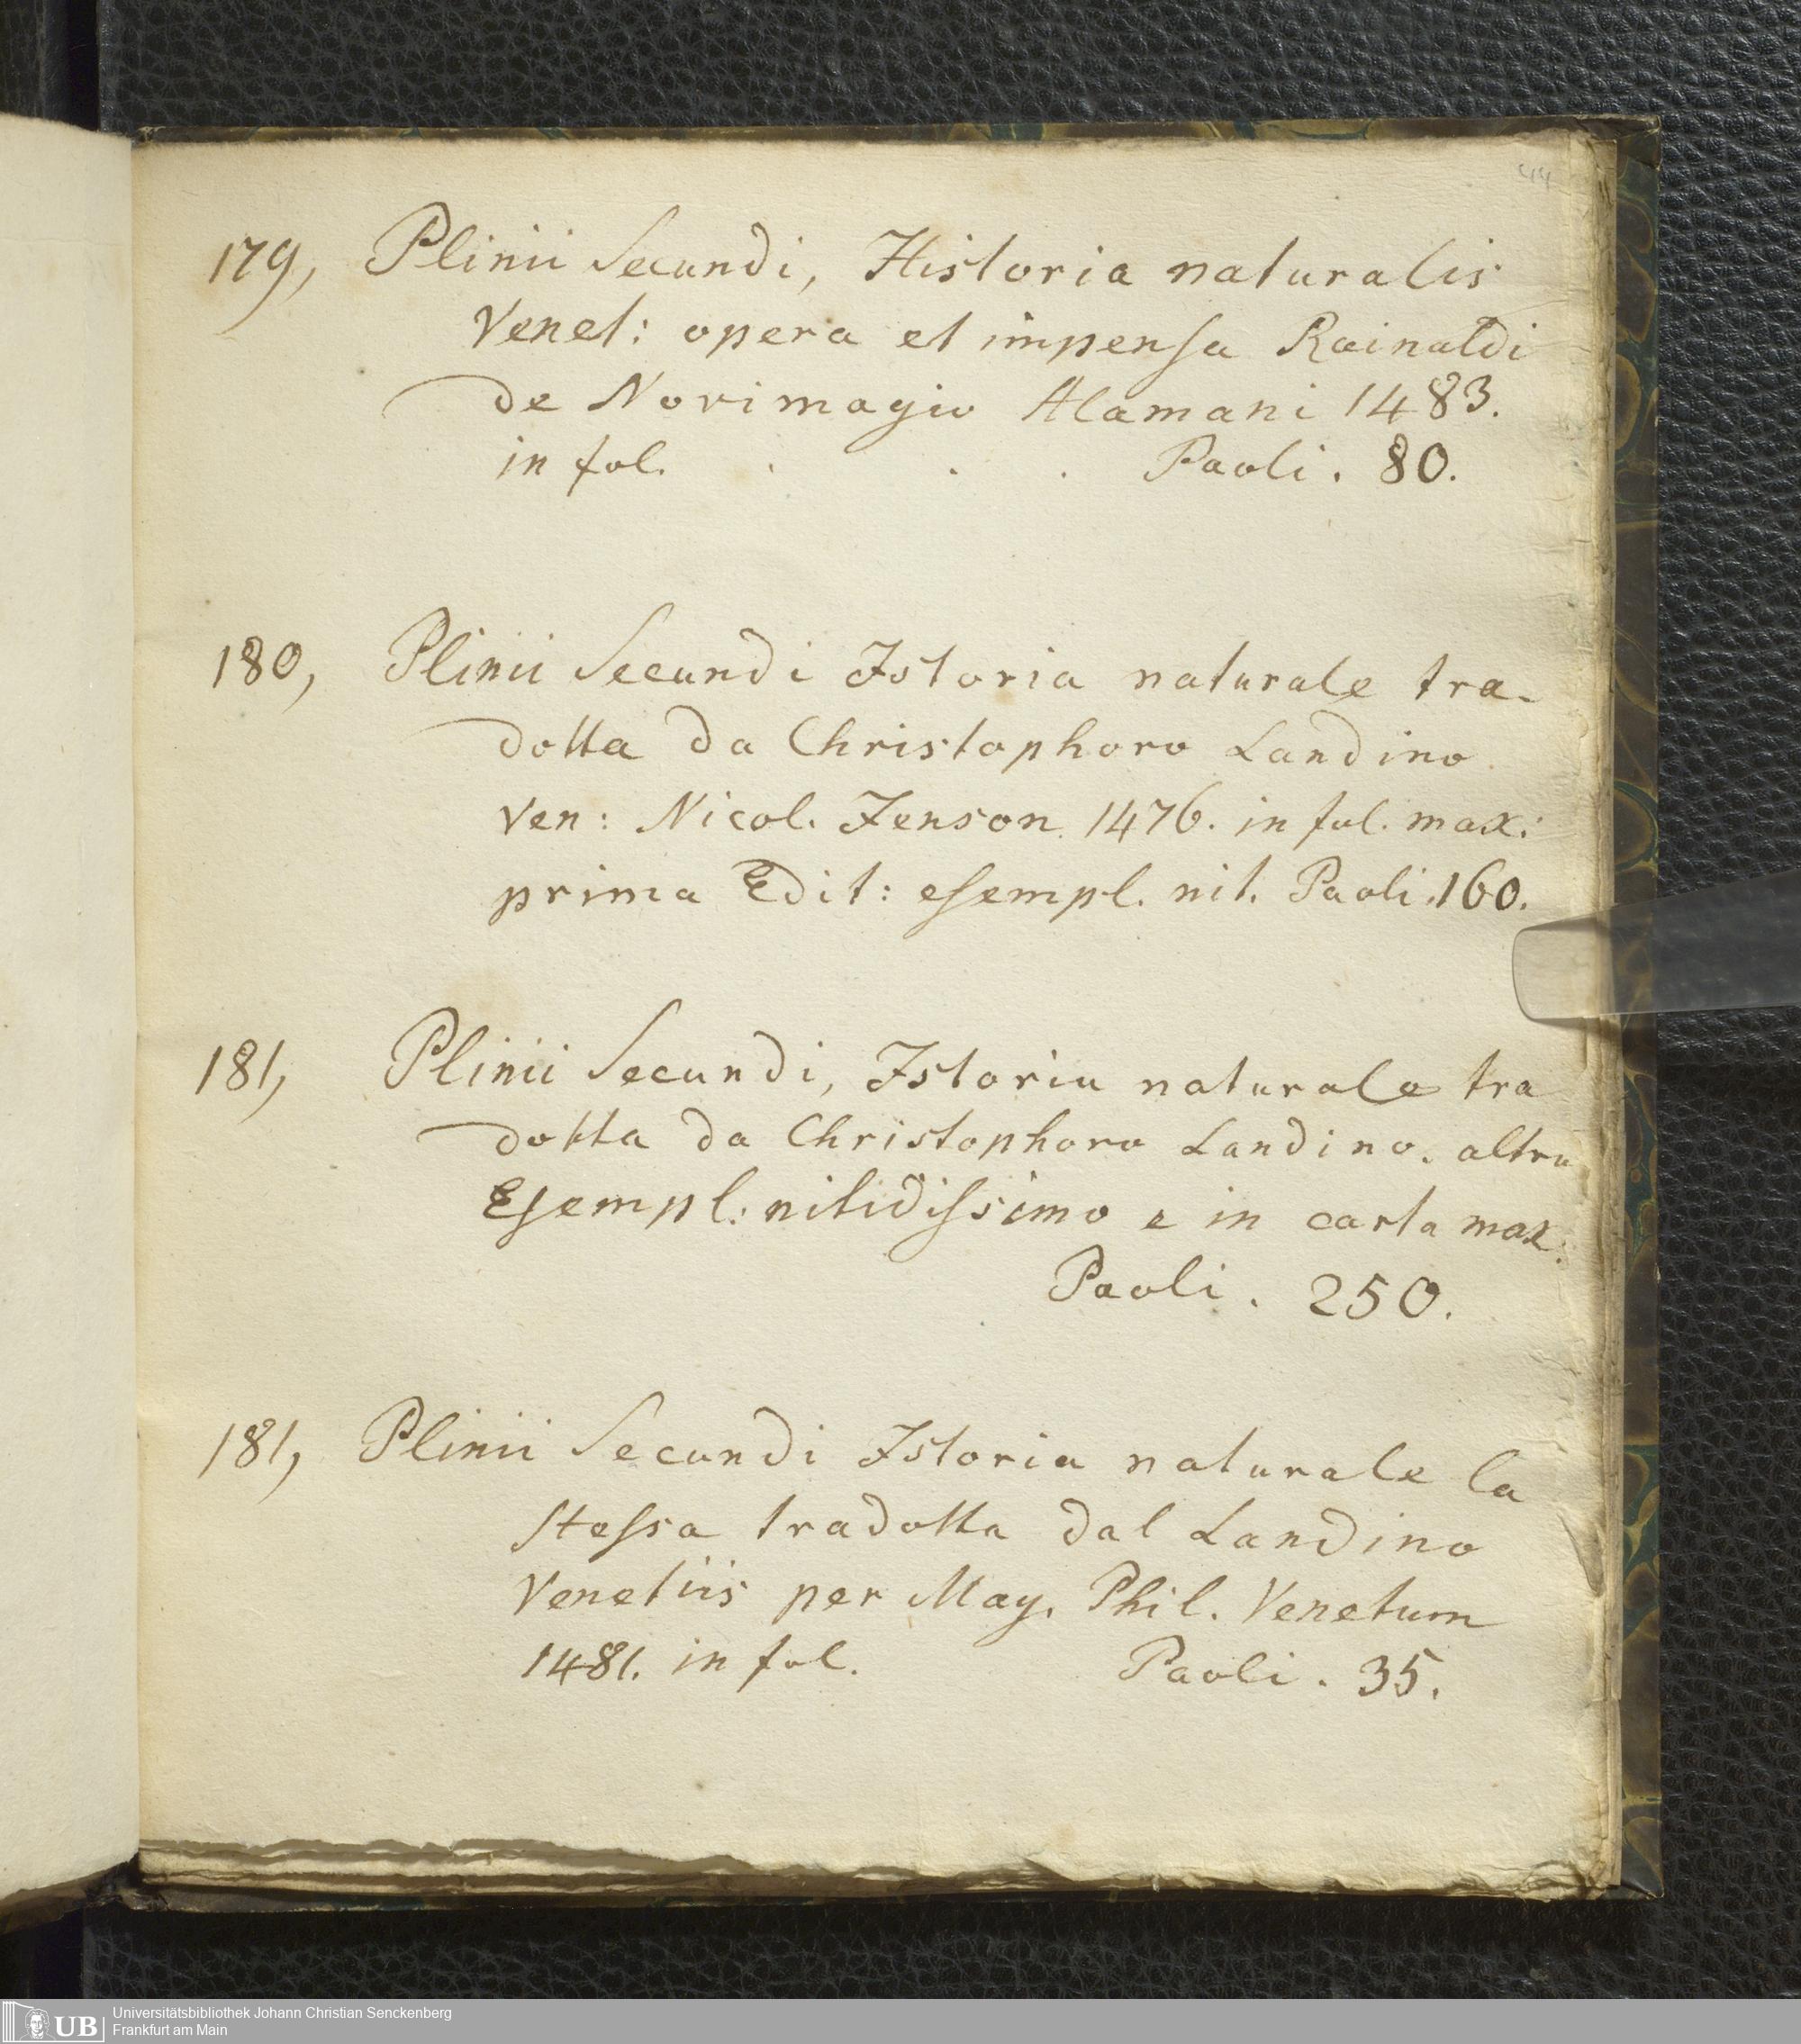 44
179, Plinii Secundi, Historia naturalis
Venet: opera et impensa Rainaldi
de Novimagio Alamani 1483.
in fol. . . . Paoli. 80.
180, Plinii Secundi Istoria naturale tra-
dotta da Christophoro Landino
Ven: Nicol. Jenson 1476. in fol. max:
prima Edit: esempl. nit. Paoli. 160.
181, Plinii Secundi, Istoria naturale tra
dotta da Christophoro Landino. altro
Esempl: nitidissimo e in carta max:
Paoli. 250.
181, Plinii Secundi Istoria naturale la
stessa tradotta dal Landino
Venetiis per Mag. Phil. Venetum
1481. in fol. Paoli. 35.
UB
Universitätsbibliothek Johann Christian Senckenberg
Frankfurt am Main